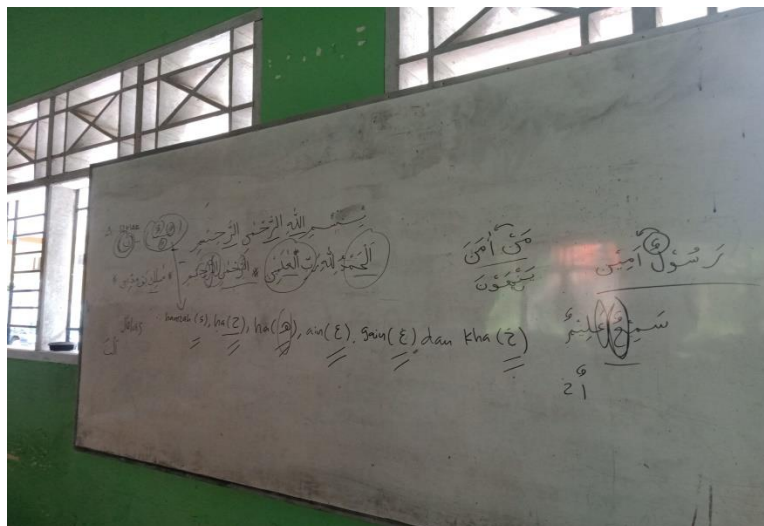 بِسْمِ اللهِ الرَّحْمٰنِ الرَّحِيْمِ
اَلْحَمْدُ لِلّٰهِ رَبِّ الْعٰلَمِيْنَ * الرَّحْمٰنِ الرَّحِيْمِ * مٰلِكِ يَوْمِ
hamzah (ء), ha (ح), ha (ه), ain (ع), gain (غ) dan kha (خ)
مَنْ اٰمَنَ
يَنْعَوْنَ
رَسُوْلٌ اَمِيْن
سَمِيْعٌ عَلِيْمٌ